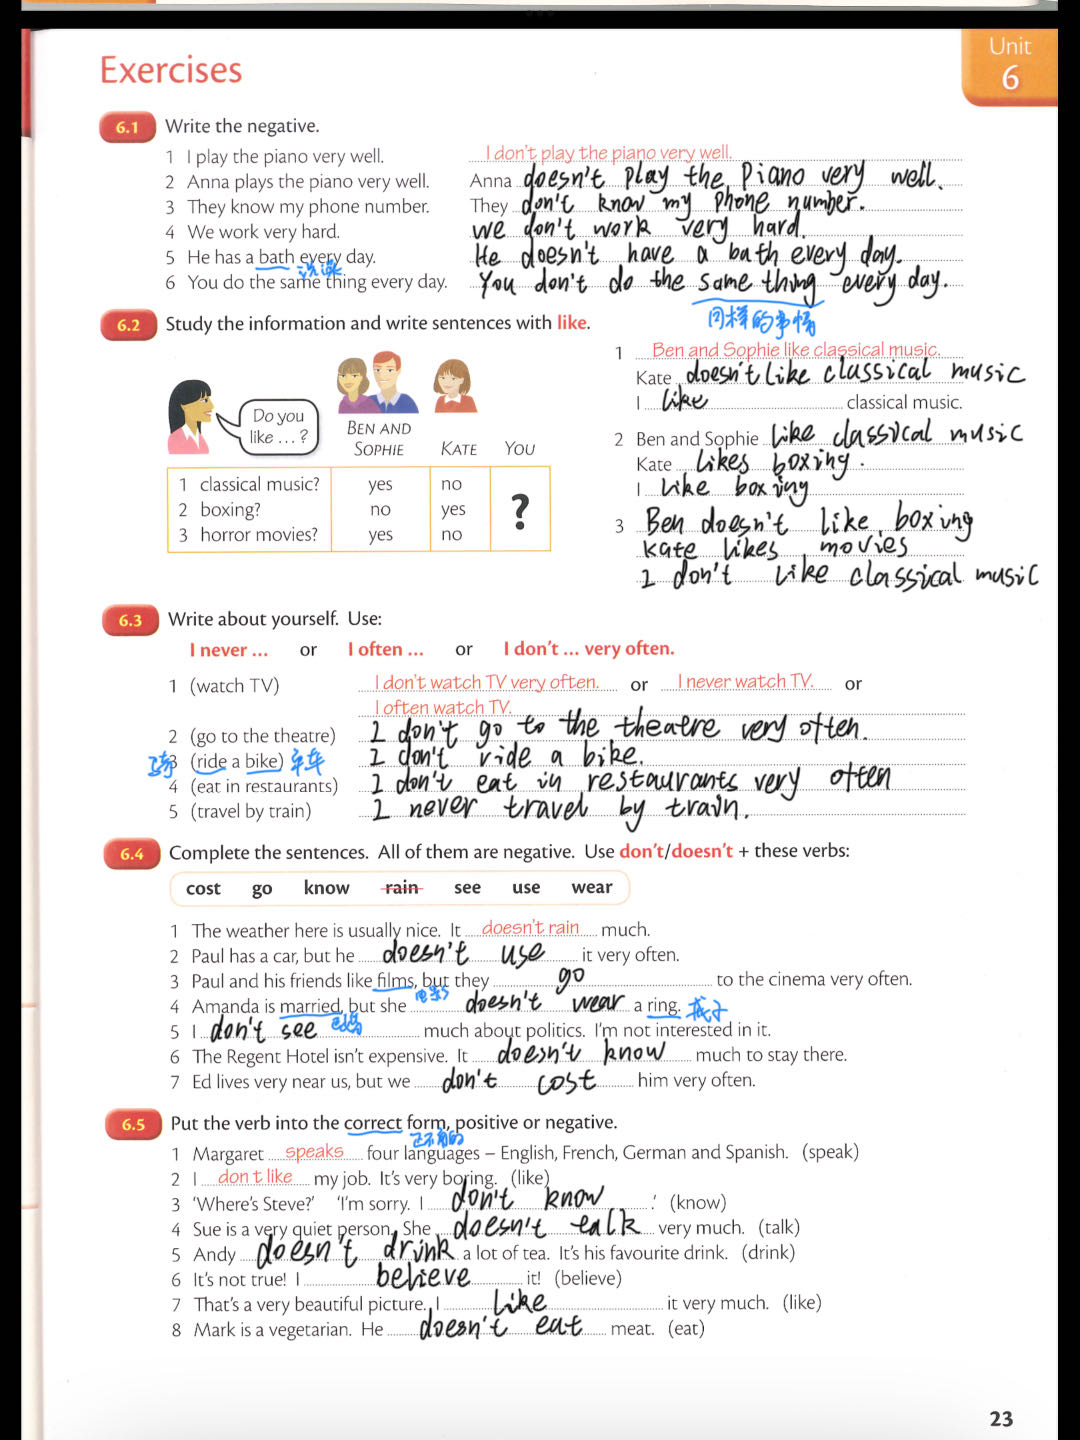 Exercises
Unit
6
6.1 Write the negative.
1 I play the piano very well. I don't play the piano very well.
2 Anna plays the piano very well. Anna doesn't play the piano very well.
3 They know my phone number. They don't know my phone number.
4 We work very hard. we don't work very hard.
5 He has a bath every day. He doesn't have a bath every day.
洗澡
6 You do the same thing every day. You don't do the same thing every day.
同样的事情
6.2 Study the information and write sentences with like.
Do you
like ... ?
BEN AND
SOPHIE KATE YOU
1 classical music? yes no
2 boxing? no yes
3 horror movies? yes no
?
1 Ben and Sophie like classical music.
Kate doesn't like classical music
I like classical music.
2 Ben and Sophie like classical music
Kate likes boxing.
I like boxing
3 Ben doesn't like boxing
kate likes movies
I don't like classical music
6.3 Write about yourself. Use:
I never ... or I often ... or I don't ... very often.
1 (watch TV) I don't watch TV very often. or I never watch TV. or
I often watch TV.
2 (go to the theatre) I don't go to the theatre very often.
骑 3 (ride a bike) 单车 I don't ride a bike.
4 (eat in restaurants) I don't eat in restaurants very often
5 (travel by train) I never travel by train.
6.4 Complete the sentences. All of them are negative. Use don't/doesn't + these verbs:
cost go know rain see use wear
1 The weather here is usually nice. It doesn't rain much.
2 Paul has a car, but he doesn't use it very often.
3 Paul and his friends like films, but they go to the cinema very often.
电影
4 Amanda is married, but she doesn't wear a ring. 戒子
已婚
5 I don't see much about politics. I'm not interested in it.
6 The Regent Hotel isn't expensive. It doesn't know much to stay there.
7 Ed lives very near us, but we don't cost him very often.
6.5 Put the verb into the correct form, positive or negative.
正确的
1 Margaret speaks four languages – English, French, German and Spanish. (speak)
2 I don't like my job. It's very boring. (like)
3 'Where's Steve?' 'I'm sorry. I don't know .' (know)
4 Sue is a very quiet person. She doesn't talk very much. (talk)
5 Andy doesn't drink a lot of tea. It's his favourite drink. (drink)
6 It's not true! I believe it! (believe)
7 That's a very beautiful picture. I like it very much. (like)
8 Mark is a vegetarian. He doesn't eat meat. (eat)
23